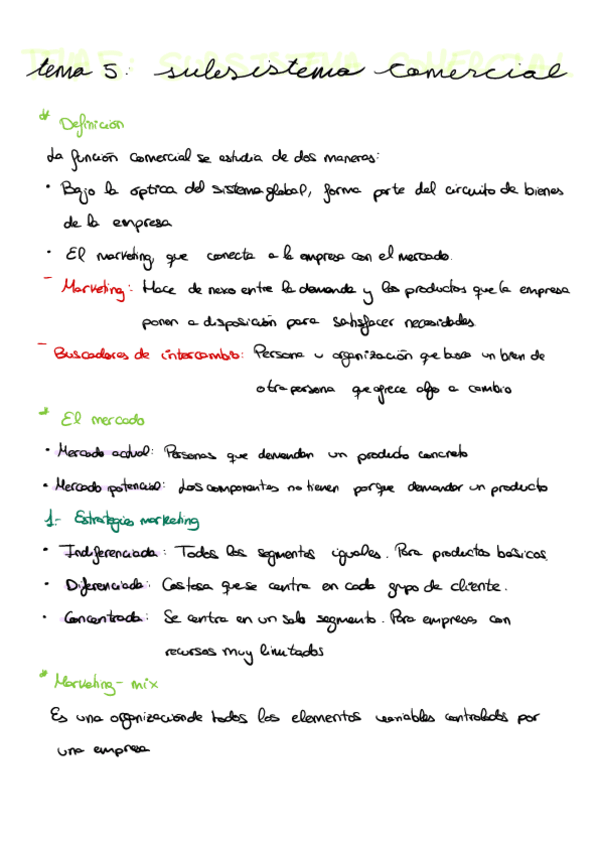 tema 5: subsistema comercial
* Definición
La función comercial se estudia de dos maneras:
• Bajo la optica del sistema global, forma parte del circuito de bienes
de la empresa
• El marketing, que conecta a la empresa con el mercado.
- Marketing: Hace de nexo entre la demanda y los productos que la empresa
ponen a disposición para satisfacer necesidades
- Buscadores de intercambio: Persona u organización que busca un bien de
otra persona que ofrece algo a cambio
* El mercado
• Mercado actual: Personas que demandan un producto concreto
• Mercado potencial: Los componentes no tienen porque demandar un producto
1.- Estrategias marketing
• Indiferenciada: Todos los segmentos iguales. Para productos basicos.
• Diferenciada: Costosa que se centra en cada grupo de cliente.
• Concentrada: Se centra en un solo segmento. Para empresas con
recursos muy limitados
* Marketing-mix
Es una organización de todos los elementos variables controlados por
una empresa